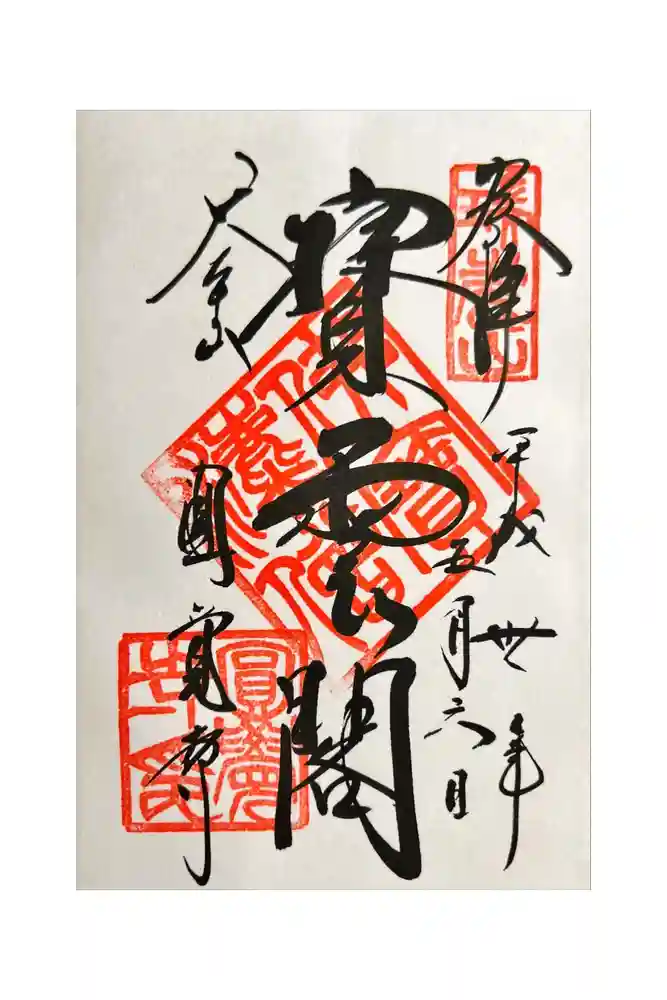 奉拝
平成丗年
五月六日
寶雲閣
大本山
圓覺寺